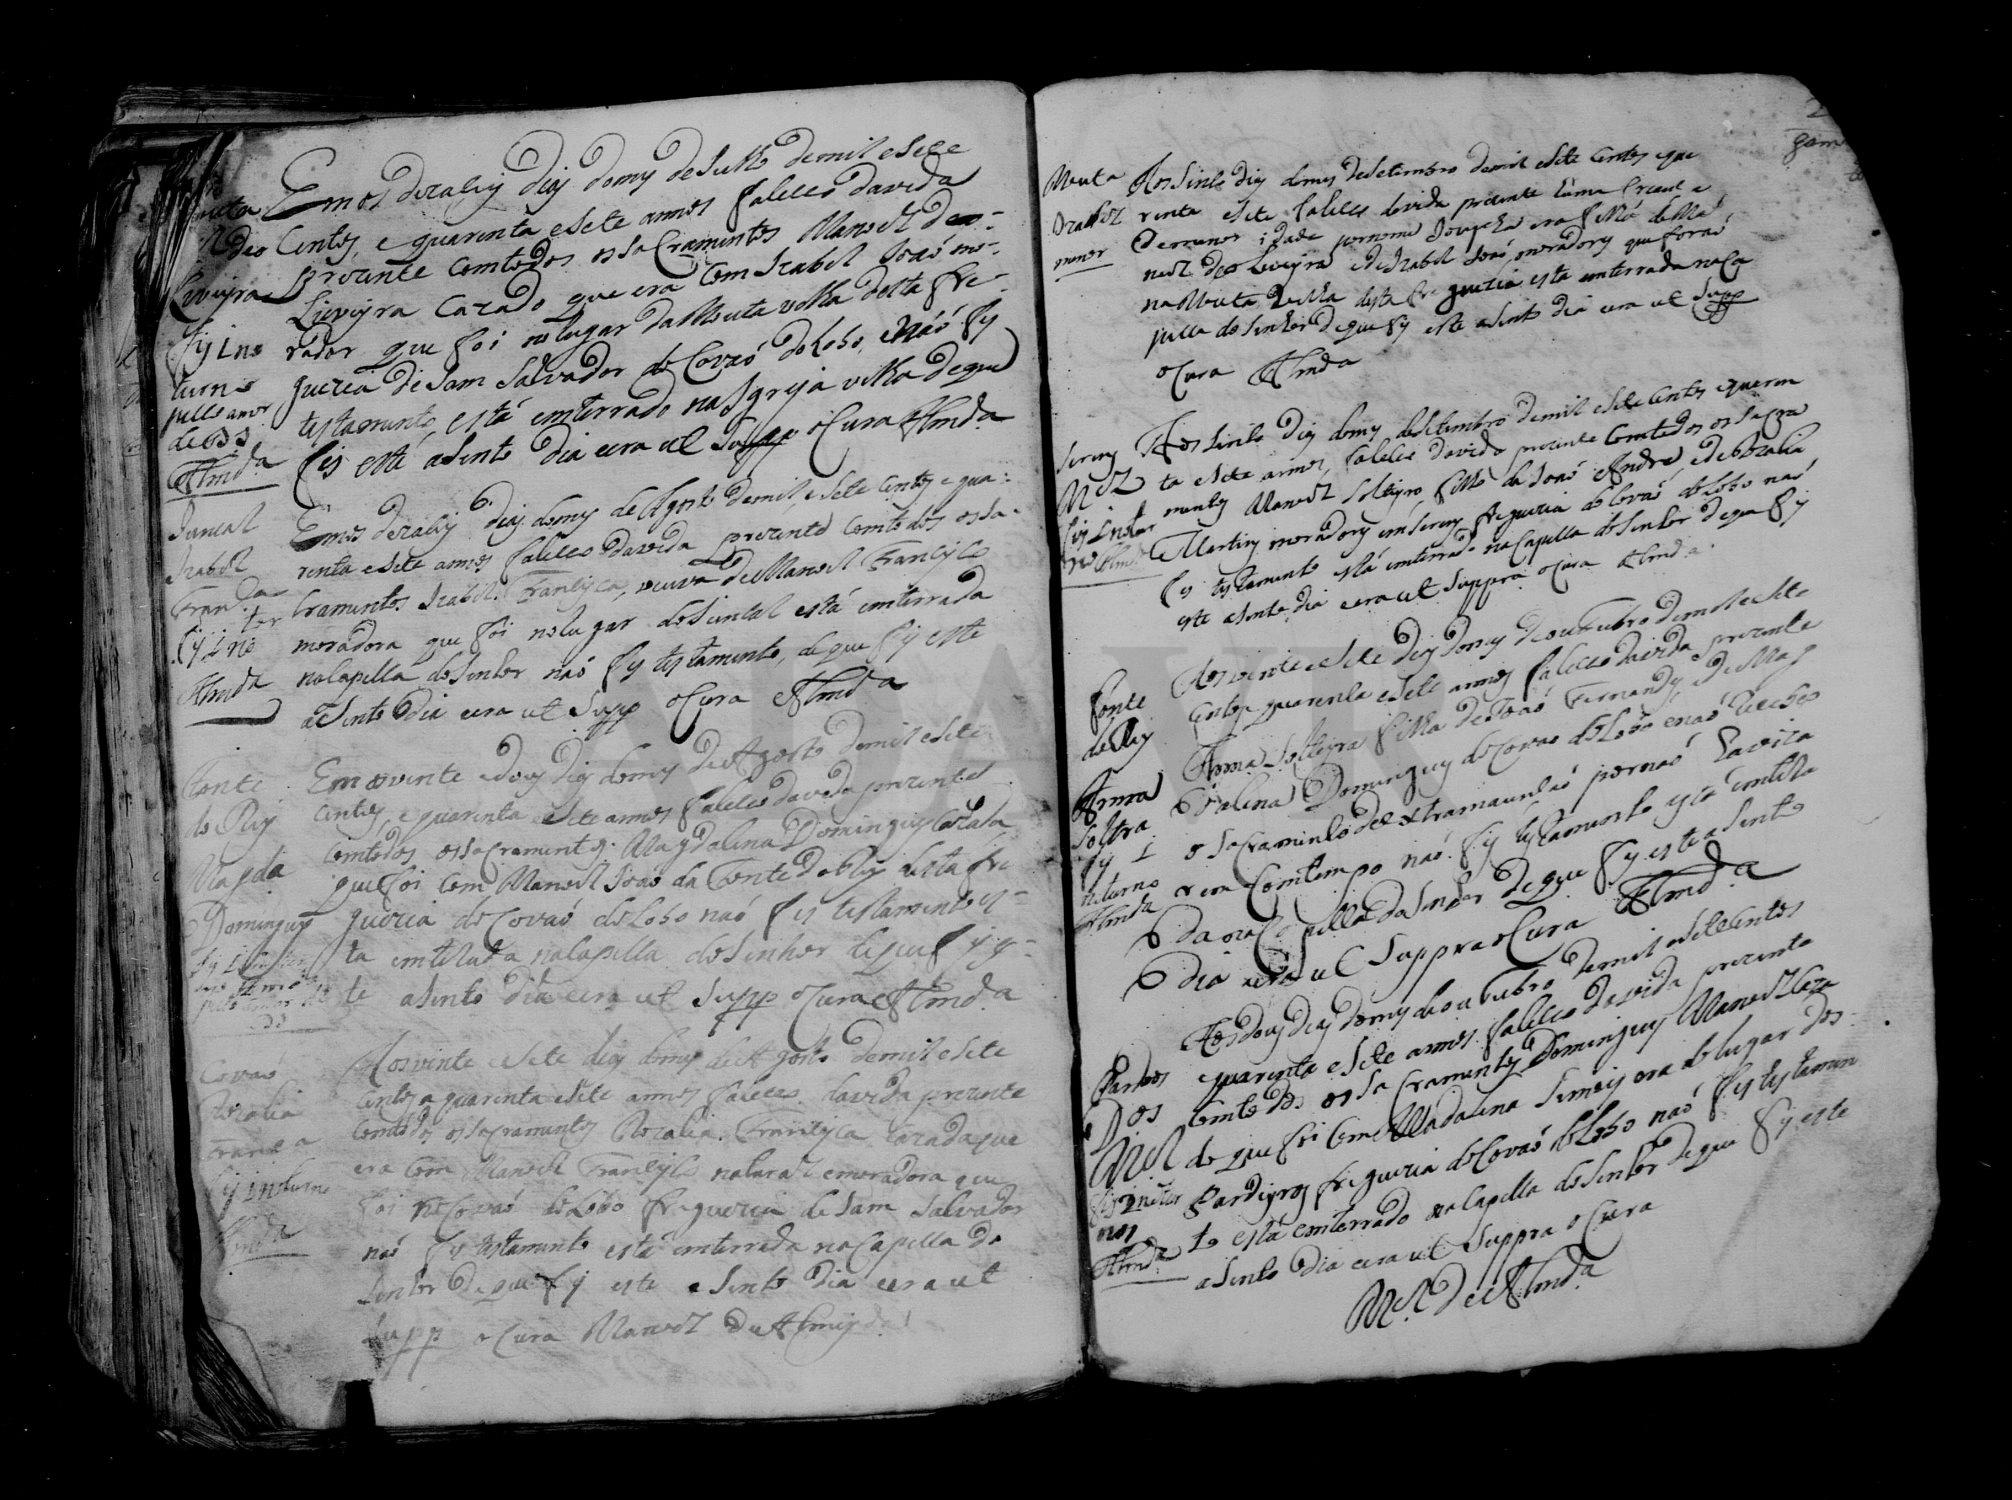 Mouta
M.el de o
Liveyra
fis I no
turno
pello amor
de Ds
Almd.a
Em os dezaseis dias do mes de Julho de mil e sete
centos, e quarenta e sete annos faleceo da vida
prezente com todos os sacramentos Manoel de o-
Liveyra cazado que era com Izabel Joaó mo-
rador que foi no lugar da Mouta velha desta fre-
guezia de Sam Salvador do Covaó do Lobo, e naó fes
testamento está emterrado na Igreja velha de que
fis esté asento dia e era ut Supp o Cura Almd.a
Juncal
Izabel
Fran.ca
fis I no tur
Almda
Em os dezaseis dias do mes de Agosto de mil, e sete centos e qua-
renta e sete annos faleceo da vida prezente com todos os sa-
cramentos Izabel Francisca, veuva de Manoel Francisco
moradora que foi no lugar do Juncal está emterrada
na Capella do Senhor naó fes testamento, de que fis este
asento dia e era ut Supp o Cura Almda
Fonte
do Rey
Magda
Domingues
Em os vinte e dous dias do mes de Agosto de mil e sete
centos, e quarenta e sete annos faleceo da vida prezente
com todos os sacramentos Magdalena Domingues cazada
que foi com Manoel Joaó da Fonte do Rey desta fre
guezia do Covaó do Lobo naó fes testamento es-
ta emterrada na Capella do Senhor de que fis es-
te asento dia e era ut Supp o Cura Almd.a
Covaó
Rozalia
Fran.ca
fis I noturno
Almda
Aos vinte e sete dias do mes de Agosto de mil e sete
centos e quarenta e sete annos faleceo da vida prezente
com todos os sacramentos Rozalia Francisca cazada que
era com Manoel Francisco natural e moradora que
foi no Covaó do Lobo freguezia de Sam Salvador
naó fes testamento está emterrada na Capella do
Senhor de que fis este asento dia e era ut
Supp o Cura Manoel de Almeyda
Mouta
Izabel
menor
Aos sinco dias do mes de Setembro de mil e sete centos e qua
renta e sete faleceo da vida prezente huma
de menor idade por nome era filha de Ma
noel de o Liveyra e de Izabel Joaó moradores que foraó
na Mouta Velha desta freguezia está emterrada na Ca
pella do Senhor de que fis este asento dia e era ut Supp
o Cura Almda
M.el
Aos sinco dias do mes de Setembro de mil e sete centos e quaren
ta e sete annos, faleceo da vida prezente com todos os sacra
mentos Manoel solteyro filho de Joaó Andre, e de Rozalia
Martins moradores em freguezia do Covaó do Lobo naó
fes testamento está emterrado na Capella do Senhor de que fis
este asento dia e era ut Suppra o Cura Almda
Fonte
do Rey
Anna
soltra
fis I
noturno
Almda
Aos vinte e sete dias do mes de outubro de mil e sete
centos e quarenta e sete annos faleceo da vida prezente
Anna Solteyra filha de Joaó Fernandes, e de Mag
dalena Domingues do Covaó do Lobo e naó recebo
o sacramento da extramaunsaó por naó haviza
rem com tempo naó fes testamento está emterra
da na Capella do Senhor de que fis este asento
dia e era ut Suppra o Cura Almd.a
Pardros
M.el
fis I notur
no
Almda
Aos dous dias do mes de outubro de mil e sete centos
e quarenta e sete annos faleceo da vida prezente
com todos os sacramentos Domingues Manoel caza
do que foi com Madalena Simois era do lugar dos
Pardeyros freguezia do Covaó do Lobo naó fes testamen
to está emterrado na Capella do Senhor de que fis este
asento dia e era ut Suppra o Cura
M.el de Almd.a